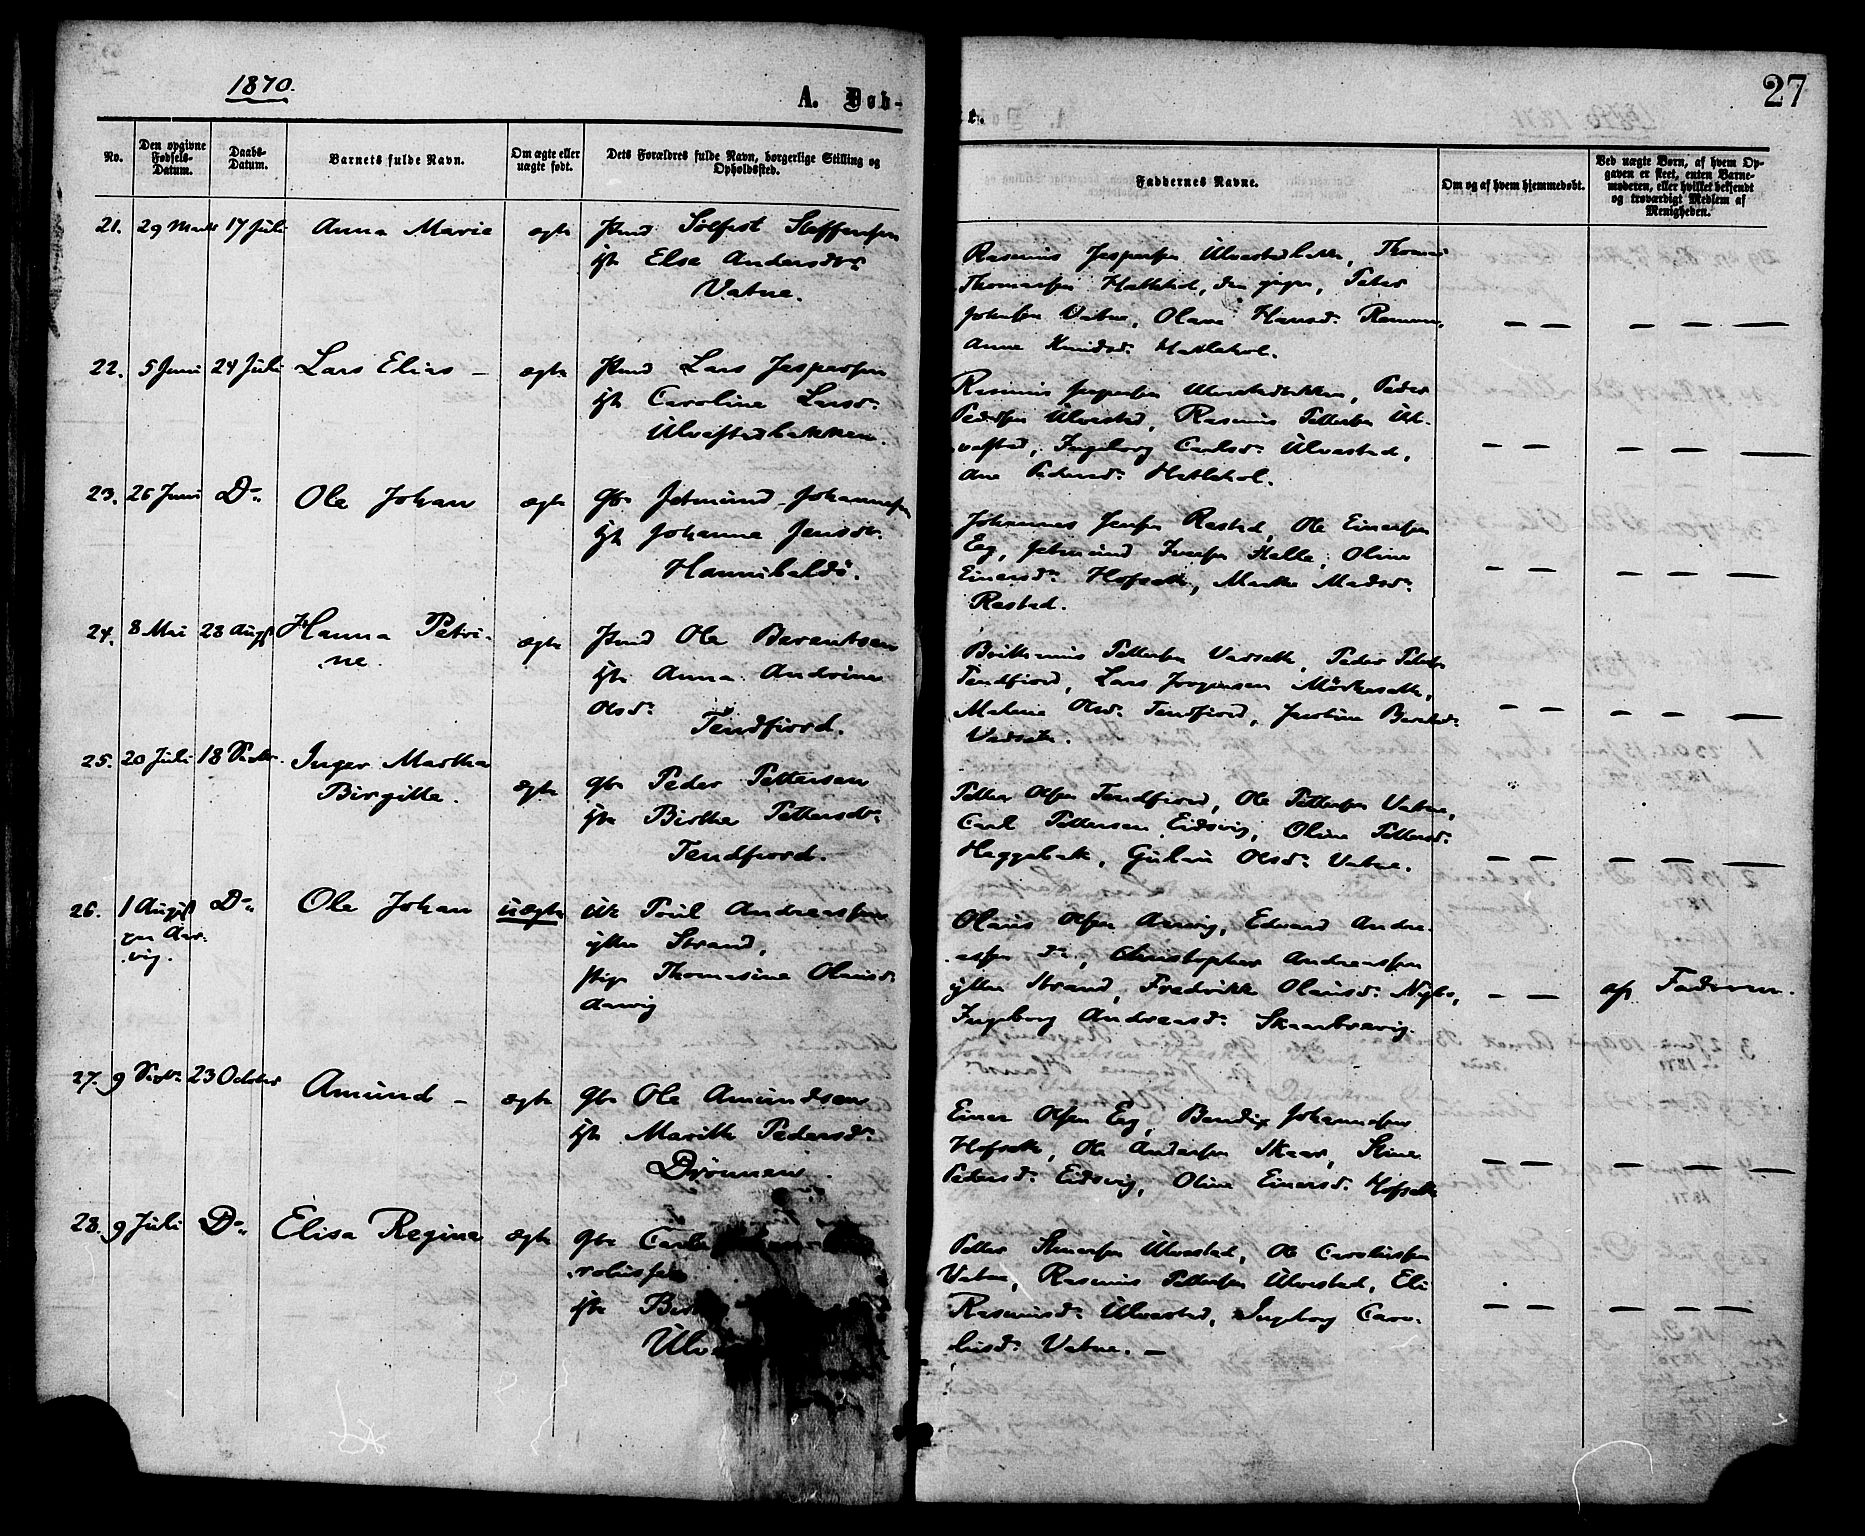 1870.
A. Døb-
te.
27
No.
Den opgivne Fødsels-Datum.
Daabs-Datum.
Barnets fulde Navn.
Om ægte eller uægte født.
Dets Forældres fulde Navn, borgerlige Stilling og Opholdssted.
Faddernes Navne.
Om og af hvem hjemmedøbt.
Ved uægte Børn, af hvem Opgaven er skeet, enten Barnemoderen, eller hvilket bekjendt og troværdigt Medlem af Menigheden.
21. 29 Marts 17 Juli Anna Marie ægte Pmd Sølfest Steffensen
Elsa Andersdr.
Vatne.
Rasmus Jespersen Ulvestadbakk, Thomas
Thomassen Hatlehol, den yngre, Peter
Johnsen Vatne, Olave Hansdr.
Anne Knudsdr. Hatlehol.
22. 5 Juni 24 Juli Lars Elias - ægte Pmd Lars Jespersen
Caroline Larsdr.
Ulvestadbakken.
Rasmus Jespersen Ulvestadbakken, Peder
Pedersen Ulvestad, Rasmus Pettersen Ul-
vestad, Ingeborg Carlsdr. Ulvestad,
Ane Pedersdr. Hatlehol.
23. 26 Juni Do. Ole Johan ægte Gbr Jetmund Johannessen
Johanne Jensdr.
Hannibalsø.
Johannes Jensen Restad, Ole Einersen
Eeg, Jetmund Iversen Helle, Oline
Einersdr. Hofseth, Marthe Madsdr.
Restad.
24. 8 Mai 28 Augst Hanna Petri-
ne. ægte Pmd Ole Berentsen
Anna Andrine
Olsdr.
Tendfjord.
Pettersen Vadseth, Peder
Tendfjord, Lars Jørgensen Mørkeseth,
Malene Olsdr. Tendfjord, Jacobine
Vadseth.
25. 20 Juli 18 Septbr. Inger Martha
Birgitte. ægte Gbr Peder Pettersen
Birthe Pettersdr.
Tendfjord.
Petter Olsen Tendfjord, Ole Pettersen Vatne,
Carl Pettersen Eidsvig, Oline Pettersdr.
Heggebak, Olsdr. Vatne.
26. 1 August Do. Ole Johan uægte Uk Poul Andreassen
paa Aar-
vig.
ytter Strand,
pige Thomasine Olausd.
Aarvig
Olaus Olsen Aarvig, Edvard Andre-
assen do., Christopher Andreassen
ytter Strand, Fredrikke Olausdr.
Ingeborg Andreasdr.
af Faderen.
27. 9 Septbr. 23 October Amund - ægte Gbr Ole Amundsen
Marith Pedersdr.
Drønnen.
Einer Olsen Eeg, Bendix Johannessen
Hofseth, Ole Andersen Skaar, Stine
Pedersdr. Eidsvig, Oline Einersdr. Hofseth
28. 9 Juli Do. Elisa Regine ægte Gbr Carl
Petter Steensen Ulvestad, Ole Carolussen
Vatne, Rasmus Pettersen Ulvestad, Eli
Rasmusdr. Ulvestad, Ingeborg Caro-
lusdr. Vatne. -